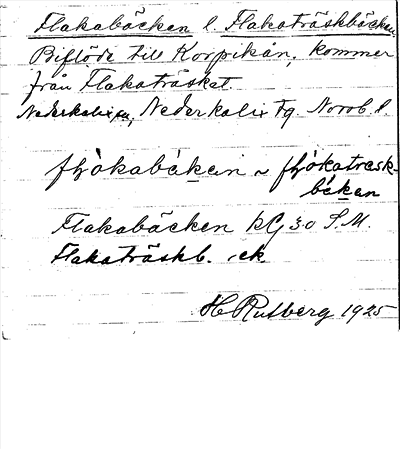 Flakabäcken l. Flakaträskbäcken
Biflöde till Korpikån, kommer
från Flakaträsket.
Nederkalix sn, Nederkalix tg. Norrb. l.
fḷökabäkan ~ fḷökatrask-
bäkan
Flakabäcken kG 30 S.M.
Flakaträskb. ek.
H Rutberg 1925